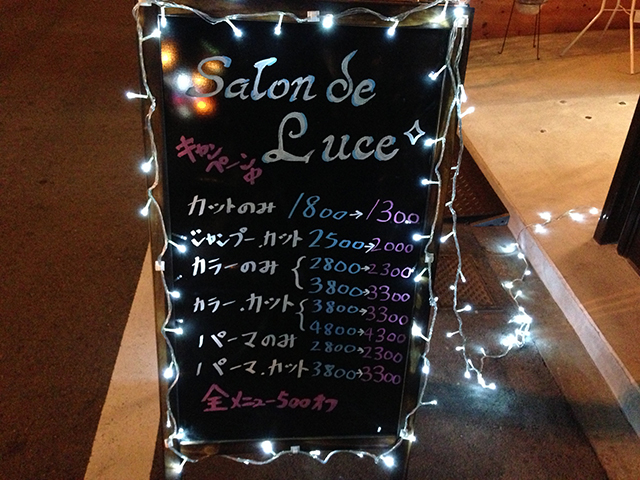 Salon de
Luce
キャンペーン中
カットのみ 1800→1300
シャンプー.カット 2500→2000
カラーのみ { 2800→2300
3800→3300
カラー.カット { 3800→3300
4800→4300
パーマのみ 2800→2300
パーマ.カット 3800→3300
全メニュー500オフ